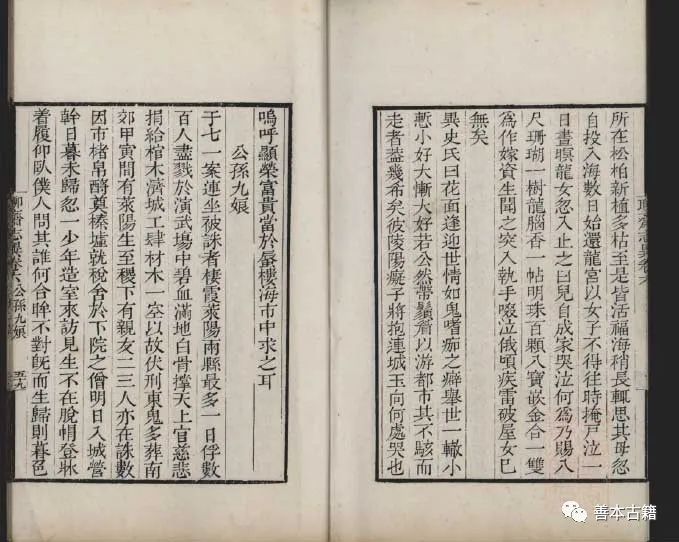 所在松柏新植多枯至是皆活福海稍長輒思其母忽
自投入海數日始還龍宮以女子不得往時掩戶泣一
日晝暝龍女忽入止之曰兒自成家哭泣何爲乃賜八
尺珊瑚一樹龍腦香一帖明珠百顆八寶嵌金合一雙
爲作嫁資生聞之突入執手啜泣俄頃疾雷破屋女已
無矣
異史氏曰花面逢迎世情如鬼嗜痂之癖舉世一轍小
慙小好大慚大好若公然帶鬚眉以游都市其不駭而
走者葢幾希矣彼陵陽癡子將抱連城玉向何處哭也
嗚呼顯榮富貴當於蜃樓海市中求之耳
公孫九娘
于七一案連坐被誅者棲霞萊陽兩縣最多一日俘數
百人盡戮於演武塲中碧血滿地白骨撑天上官慈悲
捐給棺木濟城工肆材木一空以故伏刑東鬼多葬南
郊甲寅間有萊陽生至稷下有親友二三人亦在誅數
因市楮帛酹奠榛墟就稅舍於下院之僧明日入城營
幹日暮未歸忽一少年造室來訪見生不在脫㡌登牀
着履仰臥僕人問其誰何合眸不對旣而生歸則暮色
聊齋志異卷六 公孫九娘
善本古籍